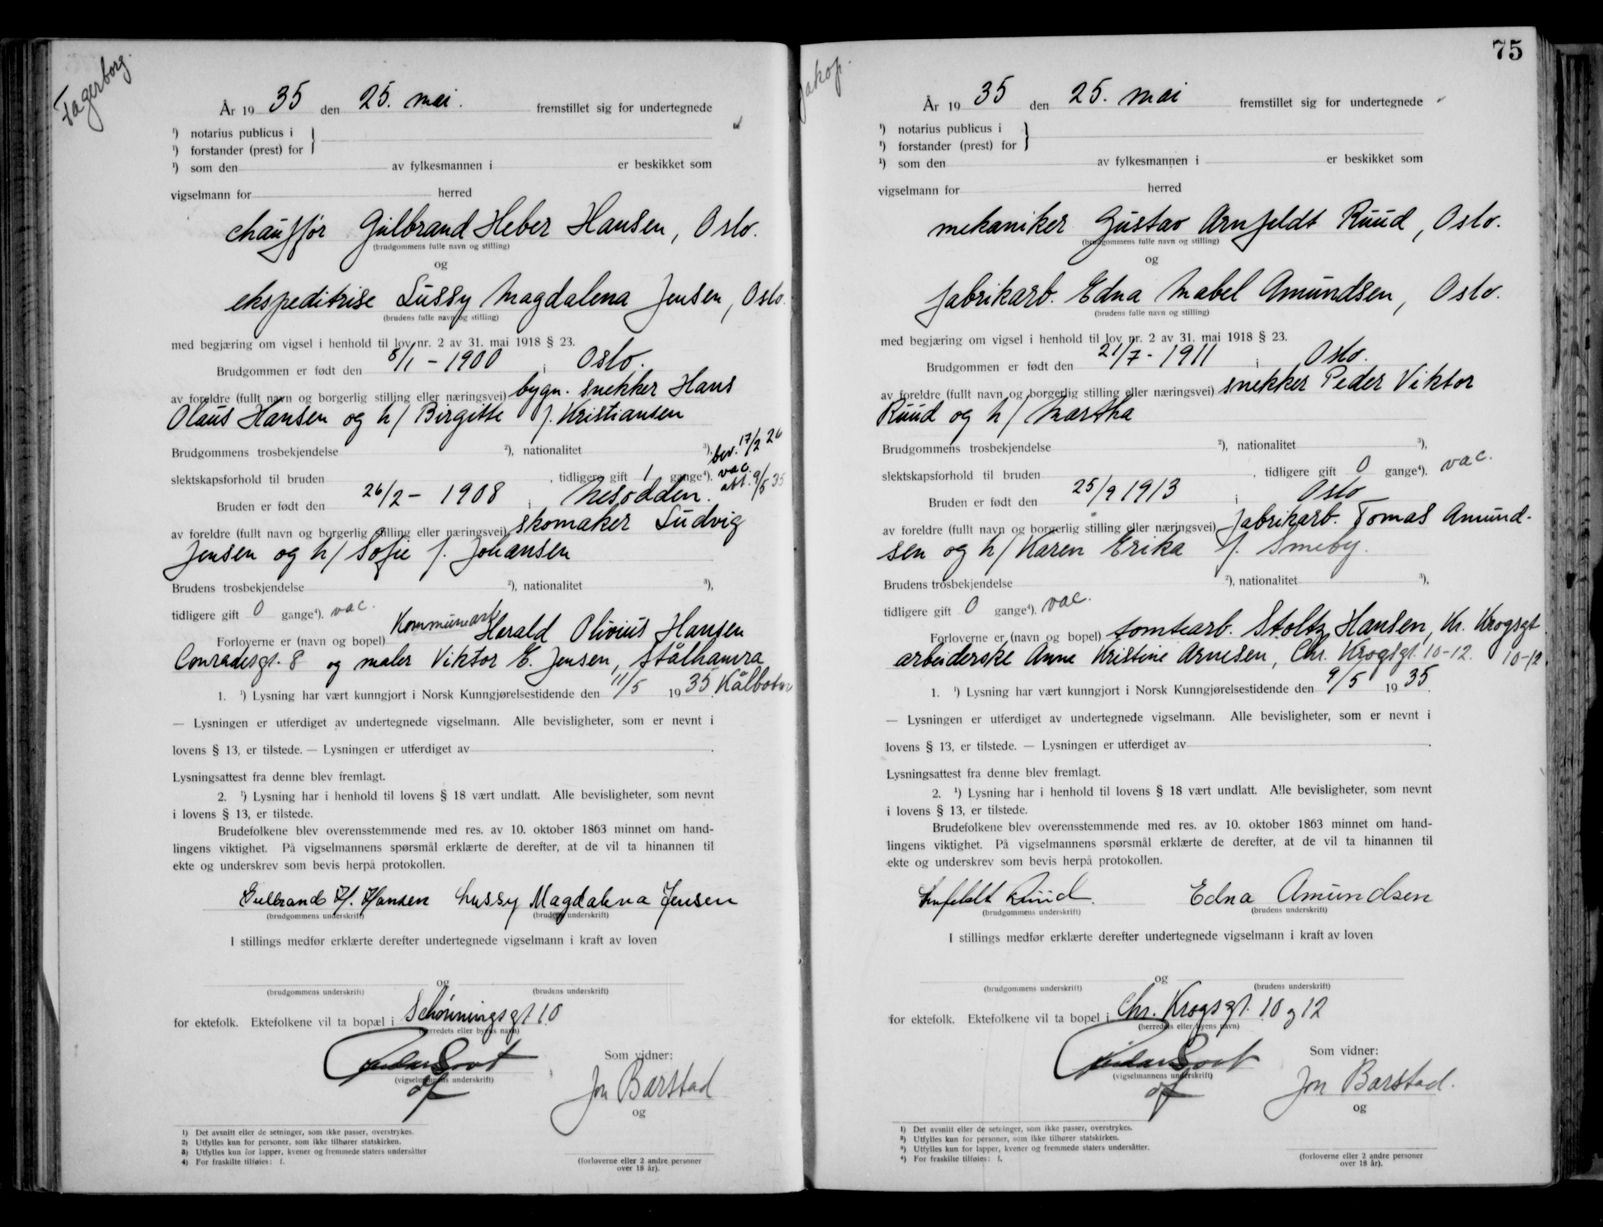 Fagerborg.
År 1935 den 25. mai. fremstillet sig for undertegnede
¹) notarius publicus i }
¹) forstander (prest) for
¹) som den av fylkesmannen i er beskikket som
vigselmann for herred
chauffør Gulbrand Heber Hansen, Oslo.
(brudgommens fulle navn og stilling)
og
ekspeditrise Lussy Magdalena Jensen, Oslo.
(brudens fulle navn og stilling)
med begjæring om vigsel i henhold til lov nr. 2 av 31. mai 1918 § 23.
Brudgommen er født den 8/1 - 1900 i Oslo.
av foreldre (fullt navn og borgerlig stilling eller næringsvei) bygn. snekker Hans
Olaus Hansen og h/ Birgitte f. Kristiansen
Brudgommens trosbekjendelse ²), nationalitet ³), bev. 17/2 26
slektskapsforhold til bruden , tidligere gift 1 gange⁴). vac. att. 9/5 35
Bruden er født den 26/2 - 1908 i Nesodden.
av foreldre (fullt navn og borgerlig stilling eller næringsvei) skomaker Ludvig
Jensen og h/ Sofie f. Johansen
Brudens trosbekjendelse ²), nationalitet ³),
tidligere gift 0 gange⁴). vac.
Forloverne er (navn og bopel) Kommunearb. Harald Olivius Hansen
Conradisgt. 8 og maler Viktor E. Jensen, Stålkamra
1. ¹) Lysning har vært kunngjort i Norsk Kunngjørelsestidende den 11/5 1935. Kålbotn
— Lysningen er utferdiget av undertegnede vigselmann. Alle bevisligheter, som er nevnt i
lovens § 13, er tilstede. — Lysningen er utferdiget av .
Lysningsattest fra denne blev fremlagt.
2. ¹) Lysning har i henhold til lovens § 18 vært undlatt. Alle bevisligheter, som nevnt
i lovens § 13, er tilstede.
Brudefolkene blev overensstemmende med res. av 10. oktober 1863 minnet om hand-
lingens viktighet. På vigselmannens spørsmål erklærte de derefter, at de vil ta hinannen til
ekte og underskrev som bevis herpå protokollen.
Gulbrand H. Hansen Lussy Magdalena Jensen
(brudgommens underskrift) (brudens underskrift)
I stillings medfør erklærte derefter undertegnede vigselmann i kraft av loven
og
(brudgommens underskrift) (brudens underskrift)
for ektefolk. Ektefolkene vil ta bopæl i Schønningsgt 10
(herredets eller byens navn)
Som vidner:
(vigselmannens underskrift)
Jon Barstad
og
1) Det avsnitt eller de setninger, som ikke passer, overstrykes.
2) Utfylles kun for personer, som ikke tilhører statskirken.
3) Utfylles kun for lapper, kvener og fremmede staters undersåtter
4) For fraskilte tilføies: f.
(forloverne eller 2 andre personer
over 18 år).
75
Jakop.
År 1935 den 25. mai fremstillet sig for undertegnede
¹) notarius publicus i }
¹) forstander (prest) for
¹) som den av fylkesmannen i er beskikket som
vigselmann for herred
mekaniker Gustav Arnfeldt Ruud, Oslo.
(brudgommens fulle navn og stilling)
og
fabrikarb. Edna Mabel Amundsen, Oslo.
(brudens fulle navn og stilling)
med begjæring om vigsel i henhold til lov nr. 2 av 31. mai 1918 § 23.
Brudgommen er født den 21/7 - 1911 i Oslo.
av foreldre (fullt navn og borgerlig stilling eller næringsvei) snekker Peder Viktor
Ruud og h/ Martha
Brudgommens trosbekjendelse ²), nationalitet ³),
slektskapsforhold til bruden , tidligere gift 0 gange⁴). vac.
Bruden er født den 25/9 1913 i Oslo
av foreldre (fullt navn og borgerlig stilling eller næringsvei) fabrikarb. Tomas Amund-
sen og h/ Karen Erika f. Smeby.
Brudens trosbekjendelse ²), nationalitet ³),
tidligere gift 0 gange⁴). vac.
Forloverne er (navn og bopel) tomtearb. Stoltz Hansen, Kr. Krogsgt
10-12
arbeiderske Anne Kristine Arnesen, Chr. Krogsgt. 10-12.
1. ¹) Lysning har vært kunngjort i Norsk Kunngjørelsestidende den 9/5 1935.
— Lysningen er utferdiget av undertegnede vigselmann. Alle bevisligheter, som er nevnt i
lovens § 13, er tilstede. — Lysningen er utferdiget av .
Lysningsattest fra denne blev fremlagt.
2. ¹) Lysning har i henhold til lovens § 18 vært undlatt. Alle bevisligheter, som nevnt
i lovens § 13, er tilstede.
Brudefolkene blev overensstemmende med res. av 10. oktober 1863 minnet om hand-
lingens viktighet. På vigselmannens spørsmål erklærte de derefter, at de vil ta hinannen til
ekte og underskrev som bevis herpå protokollen.
Arnfeldt Ruud. Edna Amundsen
(brudgommens underskrift) (brudens underskrift)
I stillings medfør erklærte derefter undertegnede vigselmann i kraft av loven
og
(brudgommens underskrift) (brudens underskrift)
for ektefolk. Ektefolkene vil ta bopel i Chr. Krogsgt. 10 og 12
(herredets eller byens navn)
Som vidner:
(vigselmannens underskrift)
Jon Barstad.
og
1) Det avsnitt eller de setninger, som ikke passer, overstrykes.
2) Utfylles kun for personer, som ikke tilhører statskirken.
3) Utfylles kun for lapper, kvener og fremmede staters undersåtter.
4) For fraskilte tilføies: f.
(forloverne eller 2 andre personer
over 18 år).